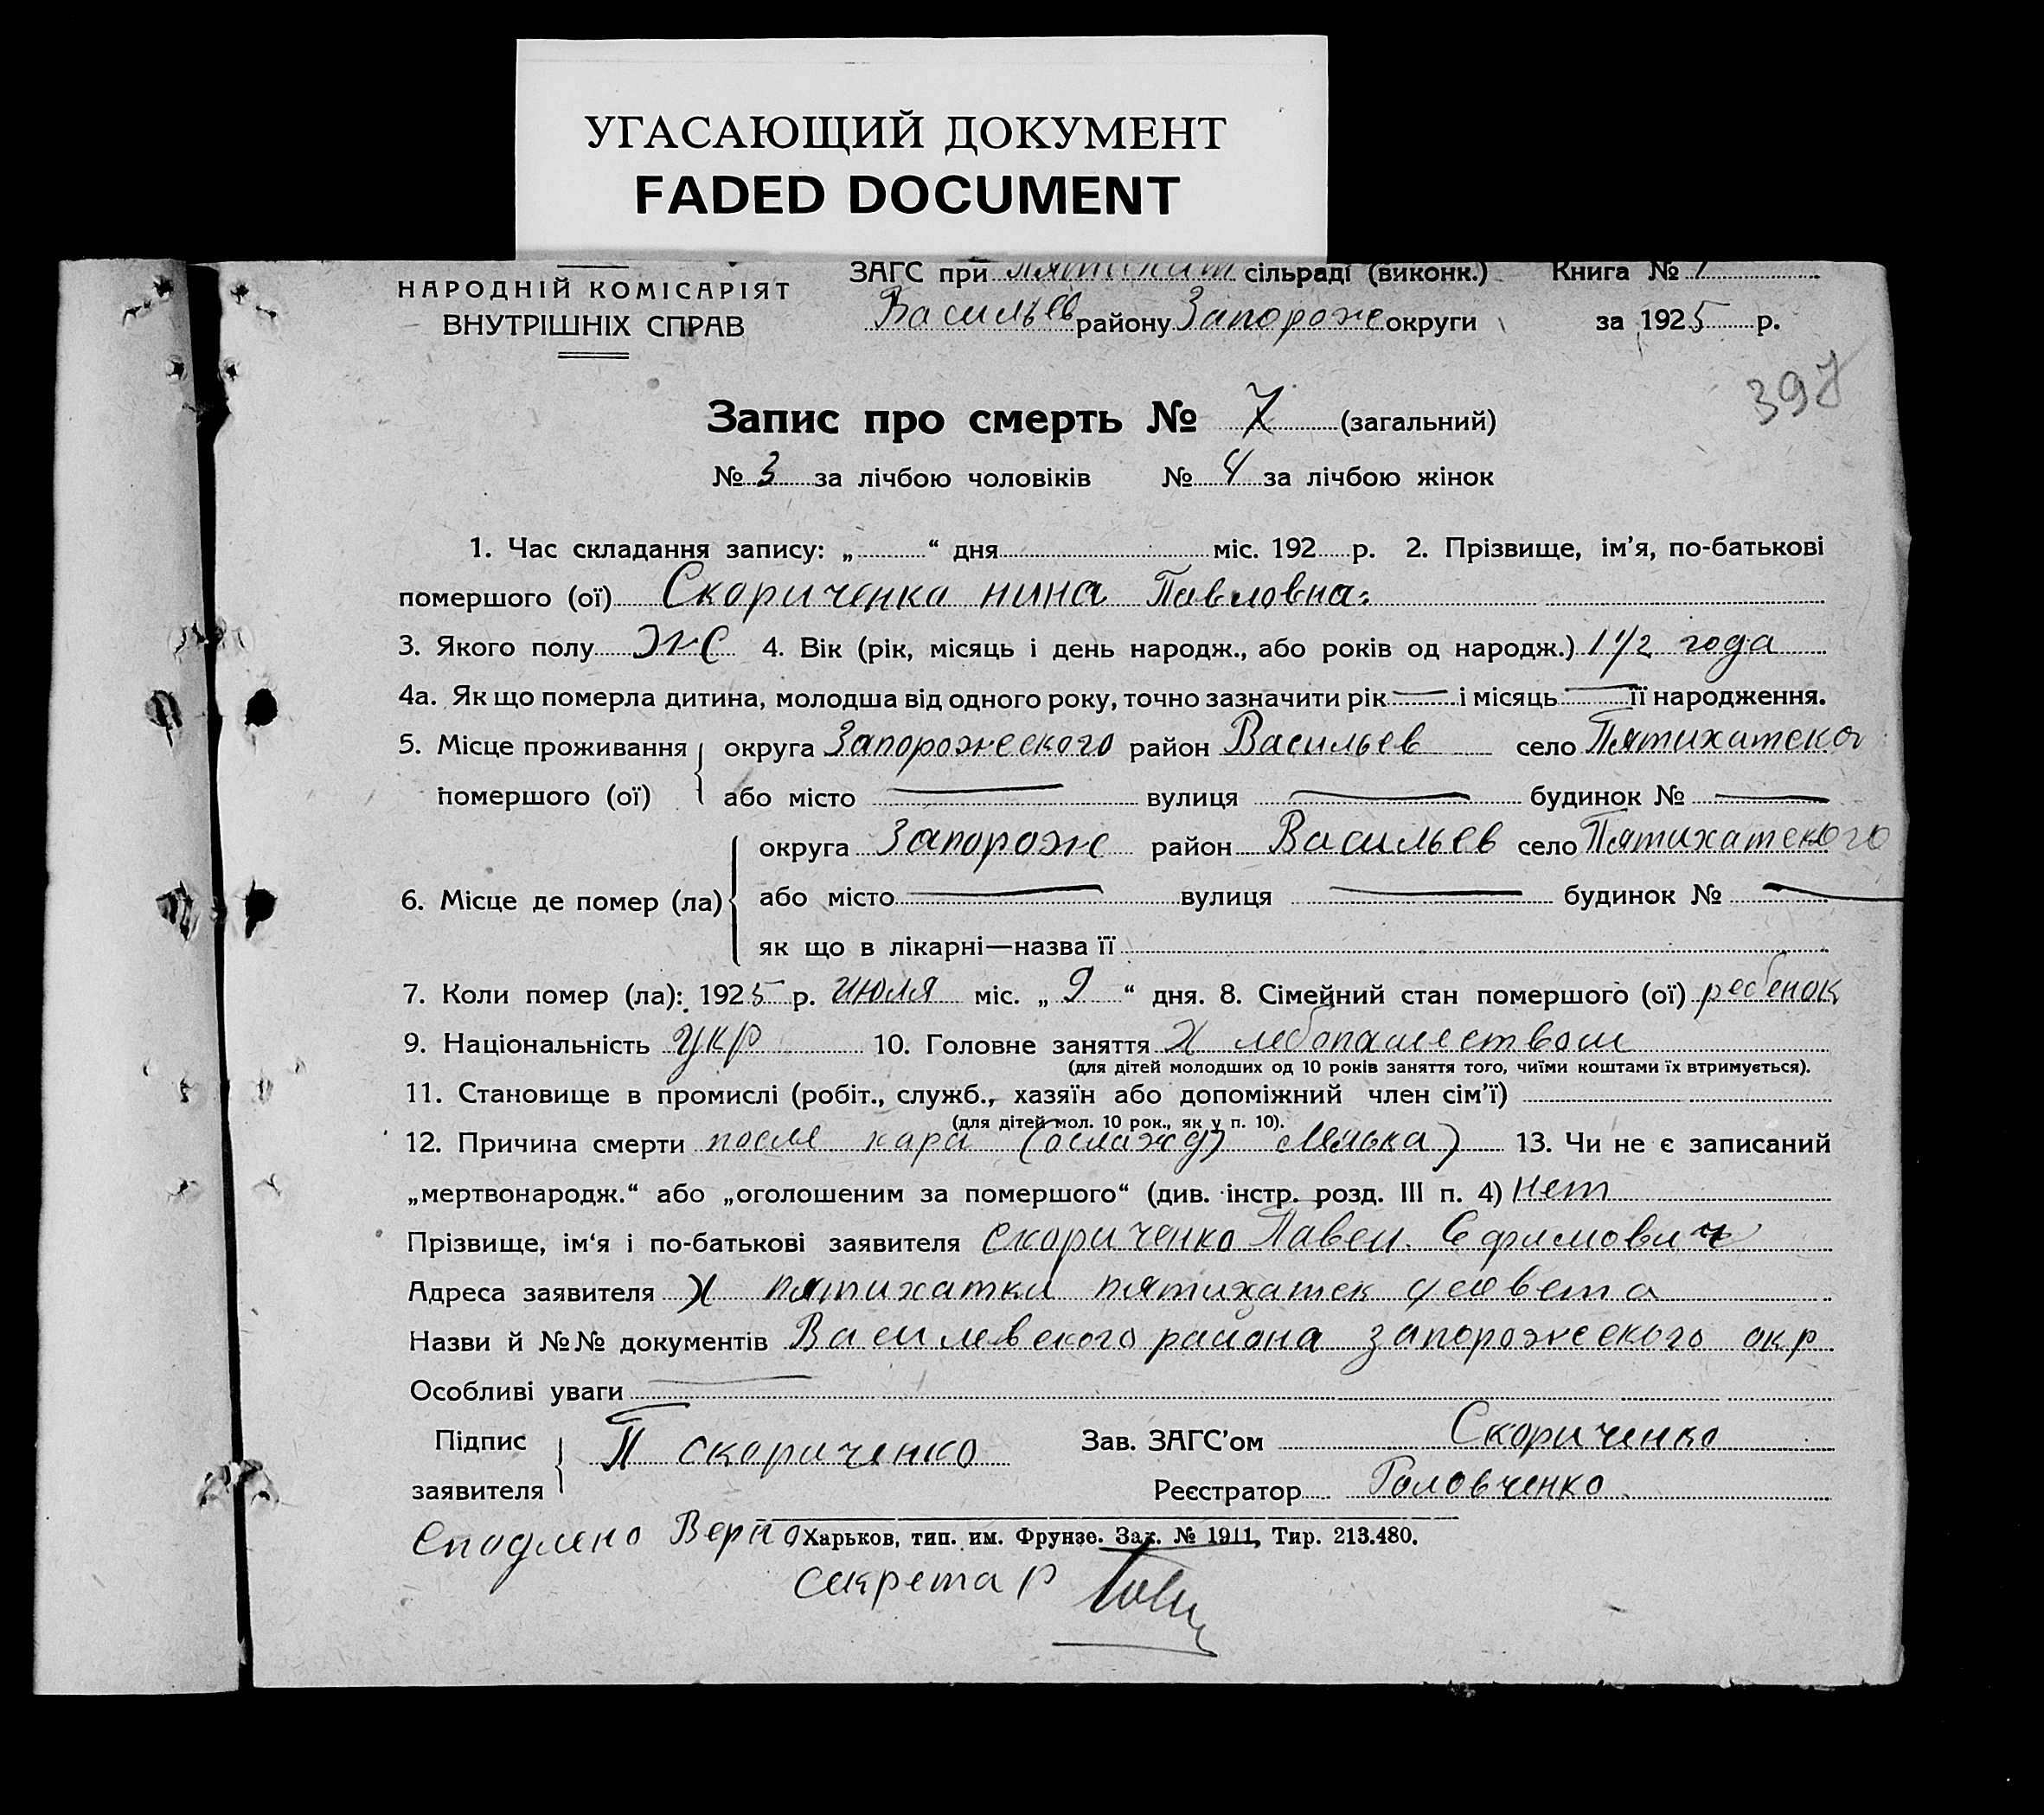 УГАСАЮЩИЙ ДОКУМЕНТ
FADED DOCUMENT
НАРОДНІЙ КОМІСАРІЯТ
ВНУТРІШНІХ СПРАВ
ЗАГС при пятихат сільраді (виконк.) Книга №
Васильев району Запорож округи за 1925 р.
397
Запис про смерть № 7 (загальний)
№ 3 за лічбою чоловіків № 4 за лічбою жінок
1. Час складання запису: „ “ дня міс. 192 р. 2. Прізвище, ім’я, по-батькові
помершого (ої) Скориченко нина Павловна
3. Якого полу же 4. Вік (рік, місяць і день народж., або років од народж.) 1 1/2 года
4а. Як що померла дитина, молодша від одного року, точно зазначити рік — і місяць — її народження.
5. Місце проживання округа Запорожского район Васильев село Пятихатског
помершого (ої) або місто — вулиця — будинок № —
округа Запорож район Васильев село Пятихатского
6. Місце де помер (ла) або місто — вулиця — будинок № —
як що в лікарні—назва її
7. Коли помер (ла): 1925 р. июля міс. „ 9 “ дня. 8. Сімейний стан помершого (ої) ребенок
9. Національність укр 10. Головне заняття Хлебопашеством
(для дітей молодших од 10 років заняття того, чиїми коштами їх втримується).
11. Становище в промислі (робіт., служб., хазяїн або допоміжний член сім’ї)
(для дітей мол. 10 рок., як у п. 10).
12. Причина смерти после кара 13. Чи не є записаний
„мертвонародж.“ або „оголошеним за помершого“ (див. інстр. розд. III п. 4) нет
Прізвище, ім‘я і по-батькові заявителя Скориченко Павел Єфимович
Адреса заявителя х пятихатки пятихатск с/совета
Назви й №№ документів Василевского района запорожского окр
Особливі уваги —
Підпис заявителя П скориченко Зав. ЗАГС’ом Скориченко
Реєстратор Головченко
Харьков, тип. им. Фрунзе. Зак. № 1911, Тир. 213.480.
Верно
секретар